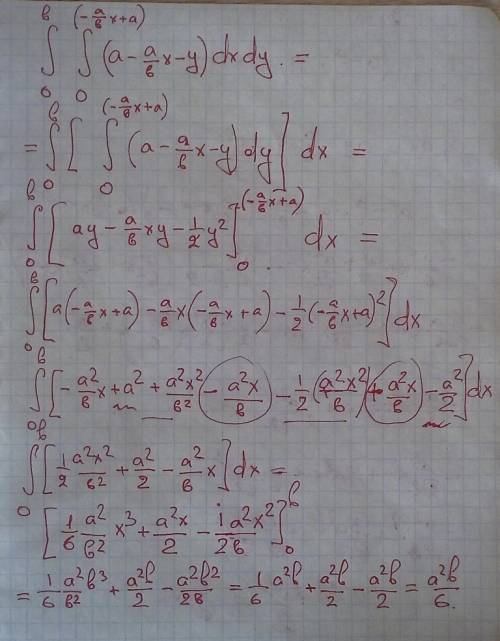 ∫₀ᵇ ∫₀^(-a/b x+a) (a - a/b x - y) dx dy. =
= ∫₀ᵇ [ ∫₀^(-a/b x+a) (a - a/b x - y) dy ] dx =
∫₀ᵇ [ ay - a/b xy - 1/2 y² ]₀^(-a/b x+a) dx =
∫₀ᵇ [ a(-a/b x+a) - a/b x(-a/b x+a) - 1/2 (-a/b x+a)² ] dx
∫₀ᵇ [ - a²/b x + a² + a²x²/b² - a²x/b - 1/2 (a²x²/b) + a²x/b - a²/2 ] dx
∫₀ᵇ [ 1/2 a²x²/b² + a²/2 - a²/b x ] dx =
[ 1/6 a²/b² x³ + a²x/2 - 1a²x²/2b ]₀ᵇ
= 1/6 a²b³/b² + a²b/2 - a²b²/2b = 1/6 a²b + a²b/2 - a²b/2 = a²b/6.